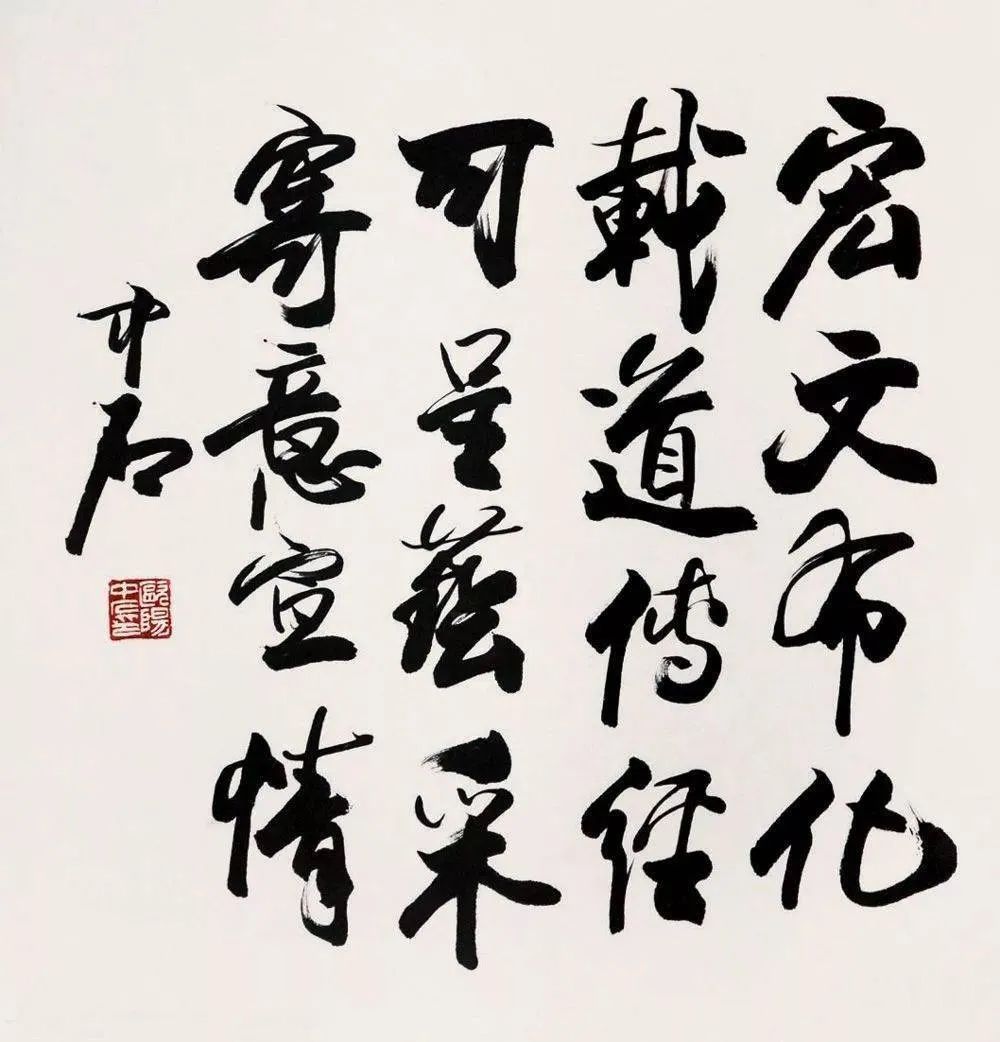 宏文布化
載道傳經
可呈藝采
寄意宣情
中石
歐陽中石